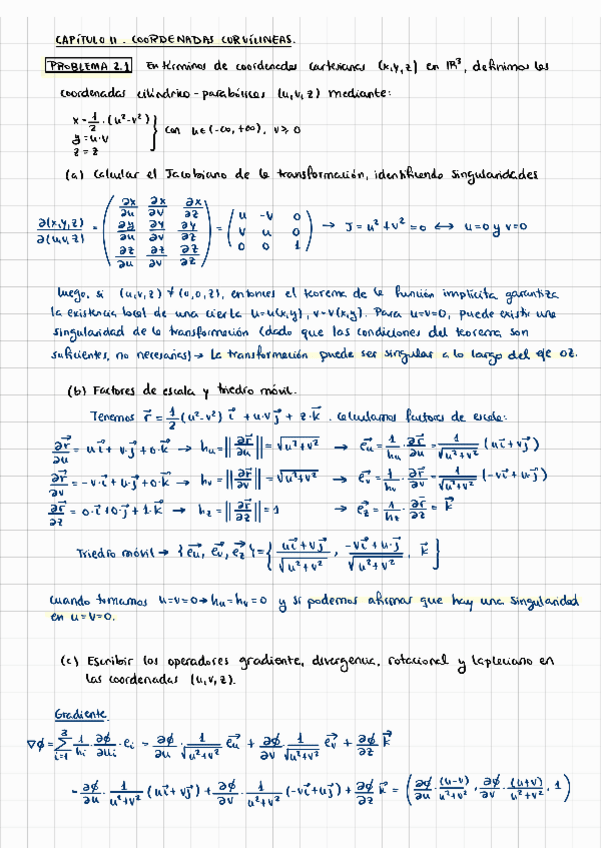 CAPÍTULO II. COORDENADAS CURVILINEAS.
PROBLEMA 2.1 En términos de coordenadas cartesianas (x,y,z) en ℝ³, definimos las
coordenadas cilíndrico-parabólicas (u,v,z) mediante:
x = 1/2 · (u²-v²)
y = u·v } con u∈(-∞, +∞), v ≥ 0
z = z
(a) Calcular el Jacobiano de la transformación, identificando singularidades
∂(x,y,z)/∂(u,v,z) = (∂x/∂u ∂x/∂v ∂x/∂z ; ∂y/∂u ∂y/∂v ∂y/∂z ; ∂z/∂u ∂z/∂v ∂z/∂z) = (u -v 0 ; v u 0 ; 0 0 1) → J = u²+v² = 0 ↔ u=0 y v=0
Luego, si (u,v,z) ≠ (0,0,z), entonces el teorema de la función implícita garantiza
la existencia local de una cierta u=u(x,y), v=v(x,y). Para u=v=0, puede existir una
singularidad de la transformación (dado que las condiciones del teorema son
suficientes, no necesarias) → La transformación puede ser singular a lo largo del eje OZ.
(b) Factores de escala y triedro móvil.
Tenemos r⃗ = 1/2 (u²-v²) i⃗ + u·v j⃗ + z·k⃗. Calculamos factores de escala:
∂r⃗/∂u = u i⃗ + v·j⃗ + 0·k⃗ → hu = ||∂r⃗/∂u|| = √(u²+v²) → e⃗u = 1/hu · ∂r⃗/∂u = 1/√(u²+v²) (u i⃗ + v j⃗)
∂r⃗/∂v = -v·i⃗ + u·j⃗ + 0·k⃗ → hv = ||∂r⃗/∂v|| = √(u²+v²) → e⃗v = 1/hv · ∂r⃗/∂v = 1/√(u²+v²) (-v i⃗ + u·j⃗)
∂r⃗/∂z = 0·i⃗ + 0·j⃗ + 1·k⃗ → hz = ||∂r⃗/∂z|| = 1 → e⃗z = 1/hz · ∂r⃗/∂z = k⃗
Triedro móvil → {e⃗u, e⃗v, e⃗z} = {(u i⃗ + v j⃗)/√(u²+v²), (-v i⃗ + u·j⃗)/√(u²+v²), k⃗}
Cuando tomamos u=v=0 → hu=hv=0 y si podemos afirmar que hay una singularidad
en u=v=0.
(c) Escribir los operadores gradiente, divergencia, rotacional y laplaciano en
las coordenadas (u,v,z).
Gradiente
∇ϕ = Σ_{i=1}^{3} 1/hi · ∂ϕ/∂ui · ei = ∂ϕ/∂u · 1/√(u²+v²) e⃗u + ∂ϕ/∂v · 1/√(u²+v²) e⃗v + ∂ϕ/∂z k⃗
= ∂ϕ/∂u · 1/(u²+v²) (u i⃗ + v j⃗) + ∂ϕ/∂v · 1/(u²+v²) (-v i⃗ + u j⃗) + ∂ϕ/∂z k⃗ = (∂ϕ/∂u · (u-v)/(u²+v²), ∂ϕ/∂v · (u+v)/(u²+v²), 1)